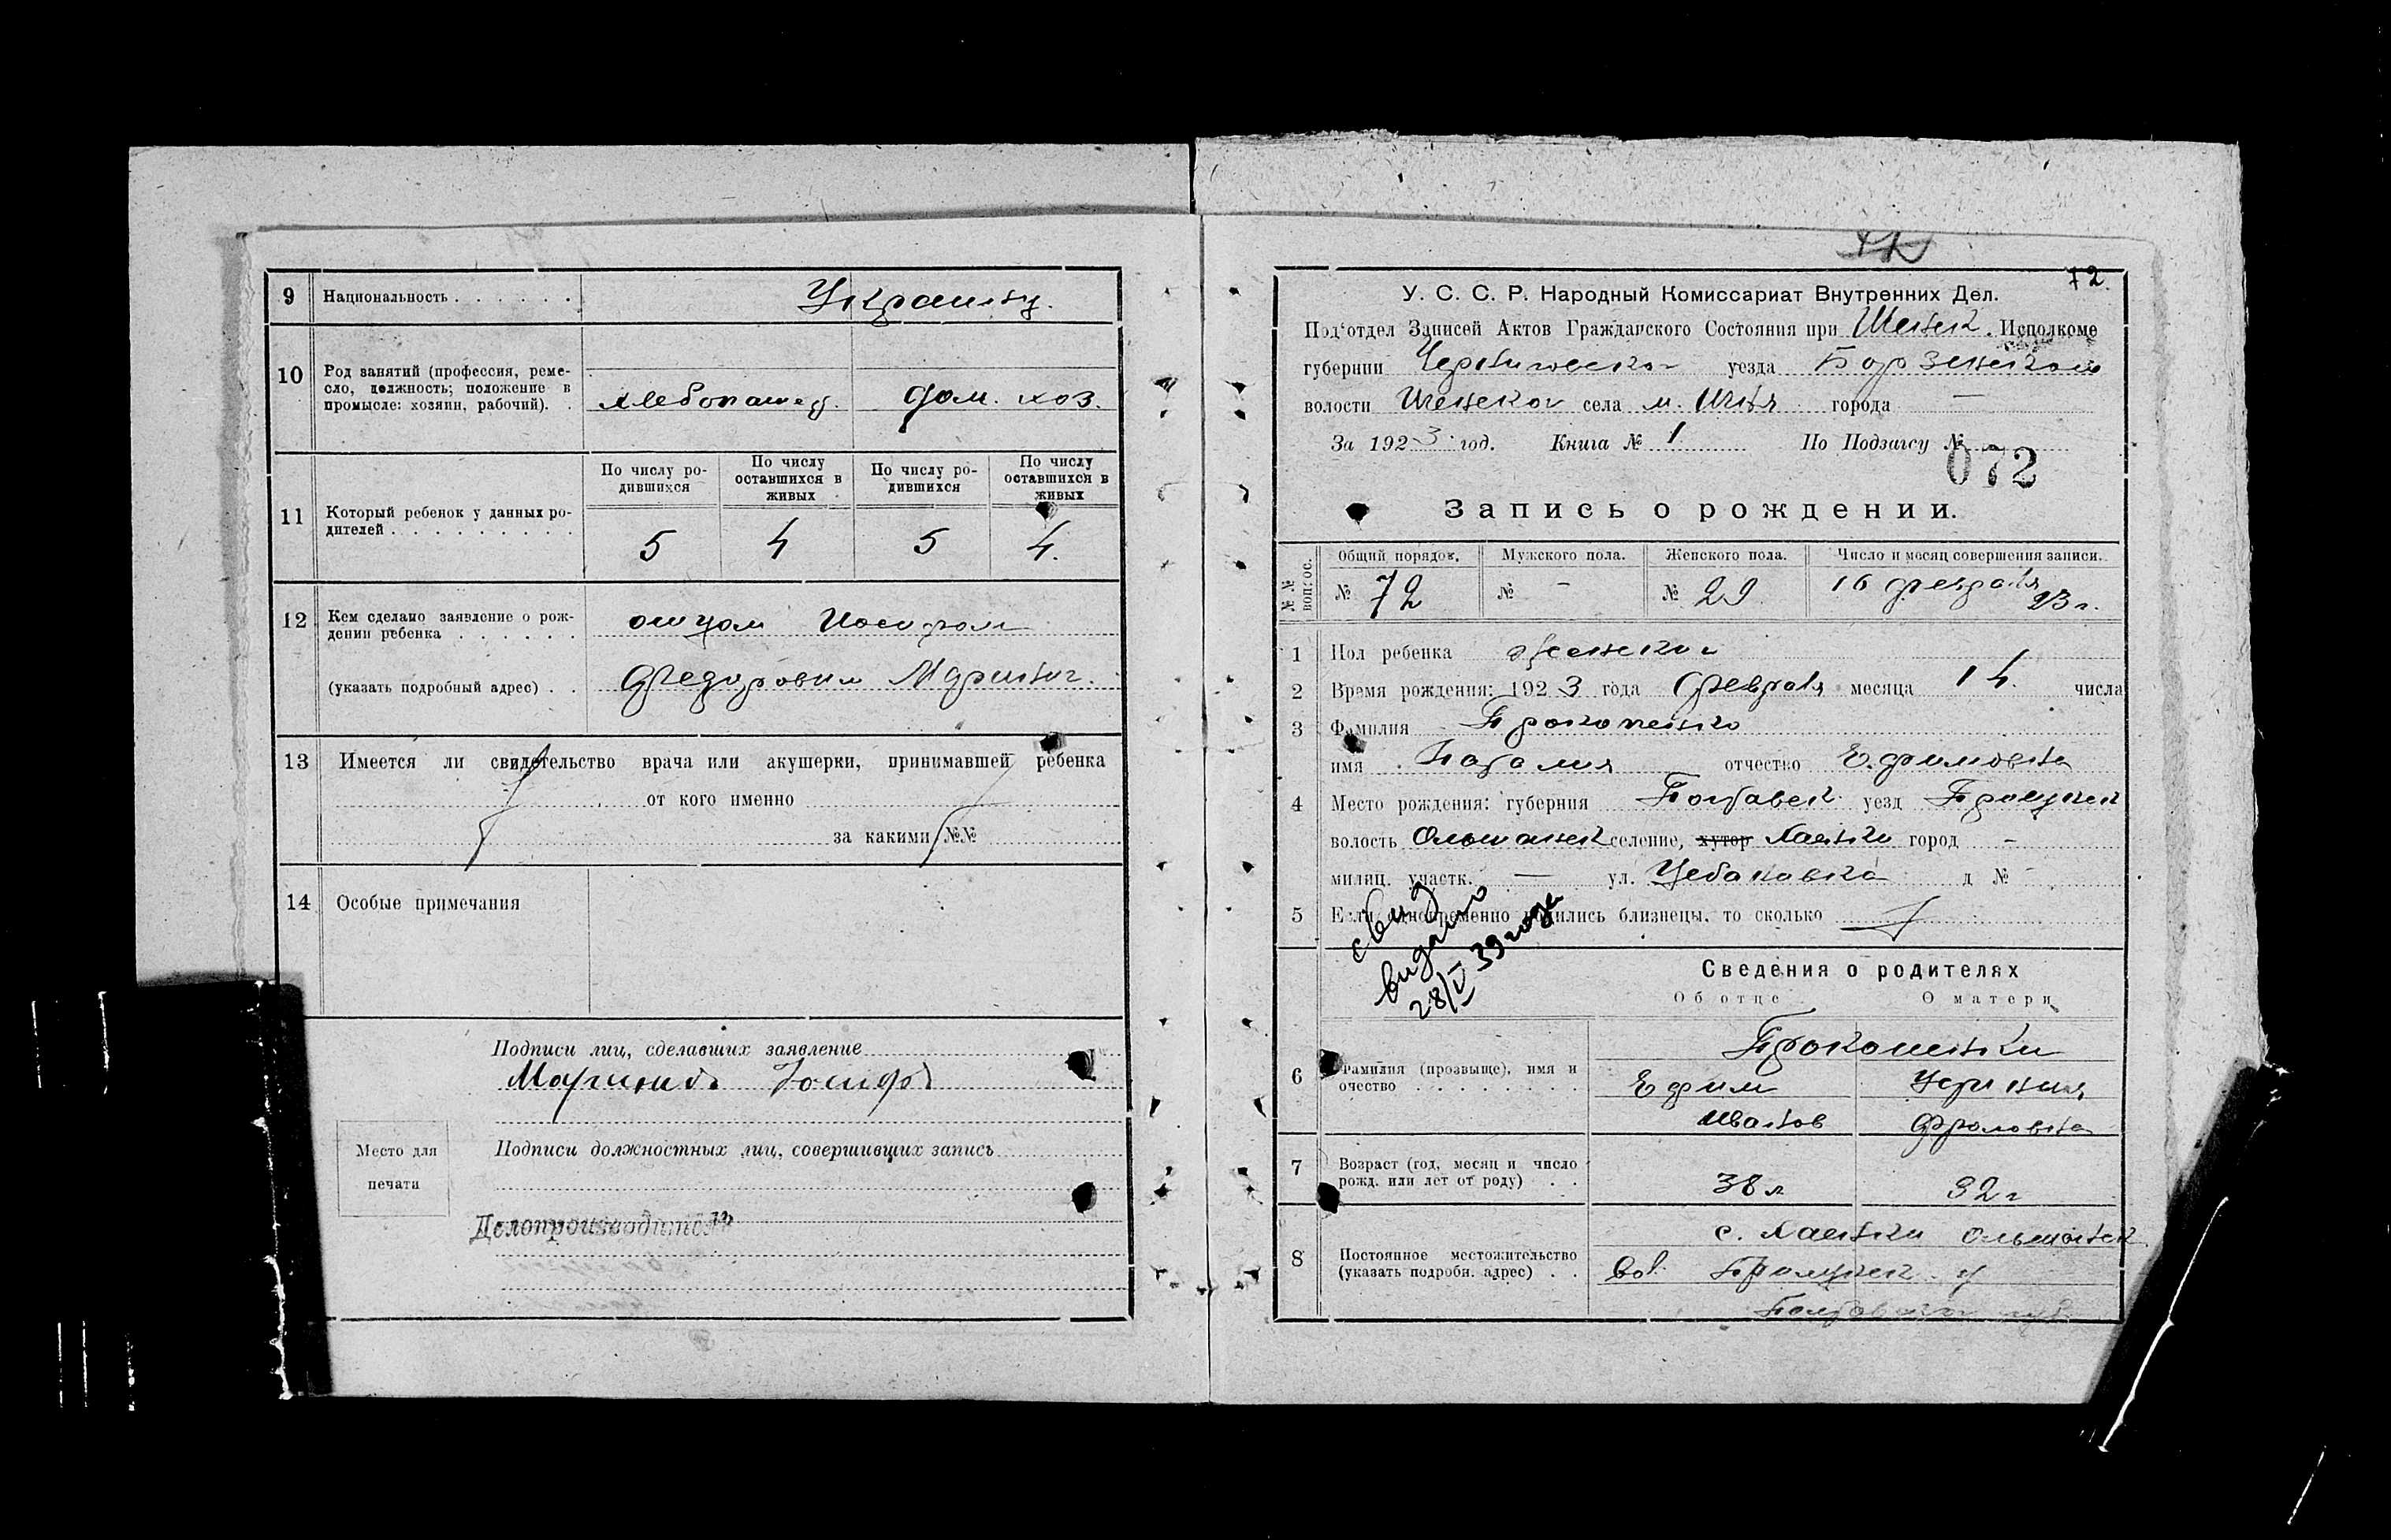 9 Национальность . . . . . . Украинц.
10 Род занятий (профессия, реме-
сло, должность; положение в
промысле: хозяин, рабочий). .
хлебопашец. дом. хоз.
По числу ро-
дившихся
По числу
оставшихся в
живых
По числу ро-
дившихся
По числу
оставшихся в
живых
11 Который ребенок у данных ро-
дителей . . . . . . . . .
5 4 5 4.
12 Кем сделано заявление о рож-
дении ребенка . . . . . .
отцом Иосифом
(указать подробный адрес) . .
Федоровим
13 Имеется ли свидетельство врача или акушерки, принимавшей ребенка
от кого именно
за какими №№
14 Особые примечания
Подписи лиц, сделавших заявление
Иосиф
Подписи должностных лиц, совершивших запись
Место для
печати
Делопроизводитель
72
У. С. С. Р. Народный Комиссариат Внутренних Дел.
Под'отдел Записей Актов Гражданского Состояния при Исполкоме
губернии Черниговской уезда Борзенском
волости села м. Ичня города —
За 1923 год. Книга № 1 По Подзагсу №
072
Запись о рождении.
№ № вопрос.
Общий порядок. Мужского пола. Женского пола. Число и месяц совершения записи.
№ 72 № - № 29 16 февраля
23 г.
1 Пол ребенка женской
2 Время рождения: 1923 года февраля месяца 14. числа
3 Фамилия Прокопенко
имя Наталия отчество Ефимовна
4 Место рождения: губерния Полтавск. уезд Прилуцк
волость Ольшанск селение, хутор город -
милиц. участк. — ул. д № -
5 Если одновременно родились близнецы, то сколько
свид
видано
28/V 39 года
Сведения о родителях
Об отце О матери
6 Фамилия (прозвище), имя и
очество . . . . . . . .
Прокопенки
Ефим
Иванов Фроловна
7 Возраст (год, месяц и число
рожд. или лет от роду) . .
38 л 32 г
8 Постоянное местожительство
(указать подробн. адрес) . .
с. Ольшанск
вол. Прилуцк. у
Полтавской губ.